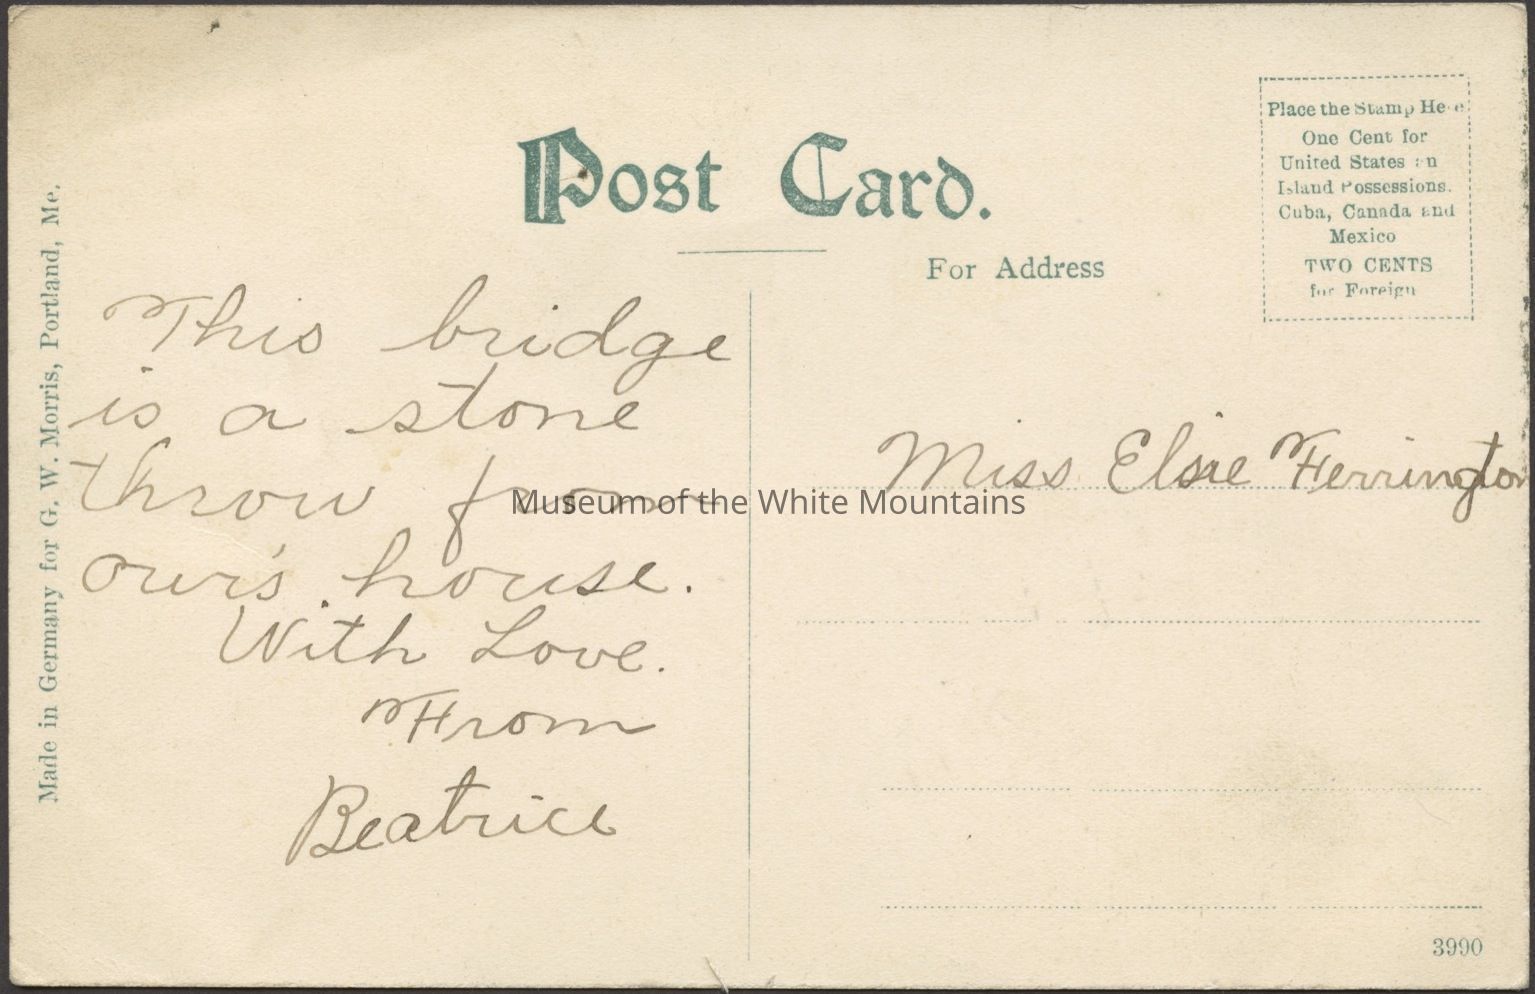 Post Card.
For Address
Place the Stamp Here
One Cent for
United States an
Island Possessions.
Cuba, Canada and
Mexico
TWO CENTS
for Foreign
Made in Germany for G. W. Morris, Portland, Me.
This bridge
is a stone
throw from
our's house.
With Love.
From
Beatrice
Miss Elsie Ferrington
Museum of the White Mountains
3990